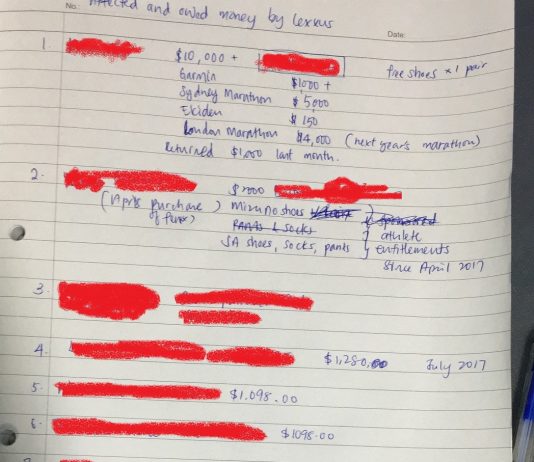 No.
affected and owed money by lexxus
Date:
1. $10,000 + free shoes x 1 pair
Garmin $1000 +
Sydney Marathon $5,000
Ekiden $150
London Marathon $4,000 (next year's marathon)
Returned $1,000 last month.
2. $2000
(April purchase) Mizuno shoes sponsored
of
Pants & socks athlete
SA shoes, socks, pants entitlements
Since April 2017
3.
4. $1,280.00 July 2017
5. $1,098.00
6. $1098.00